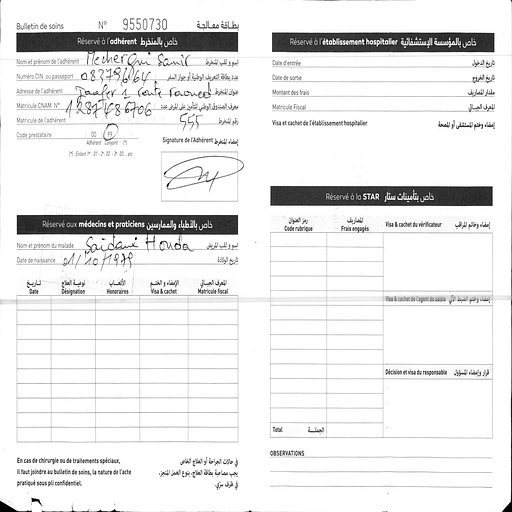 Bulletin de soins N° 9550730 بطاقة معالجة
Réservé à l'adhérent خاص بالمنخرط
Nom et prénom de l'adhérent Mechergui Samir اسم و لقب المنخرط
Numéro CIN ou passeport 08379664 عدد بطاقة التعريف الوطنية أو جواز السفر
Adresse de l'adhérent 1 route Raoued عنوان المنخرط
Matricule CNAM N° 1287486706 معرف الصندوق الوطني للتأمين على المرض عدد
Matricule de l'adhérent 555 رقم المنخرط
Code prestataire 00 99
Adhérent Conjoint (*)
(*) : Enfant 1er : 01 - 2è : 02 - 3è : 03 ... etc
Signature de l'Adhérent إمضاء المنخرط
Réservé aux médecins et praticiens خاص بالأطباء والممارسين
Nom et prénom du malade Saidani Houda اسم و لقب المريض
Date de naissance 01/10/1979 تاريخ الولادة
تاريخ نوعية العلاج الأتعاب الإمضاء و الختم المعرف الجبائي
Date Désignation Honoraires Visa & cachet Matricule fiscal
En cas de chirurgie ou de traitements spéciaux,
il faut joindre au bulletin de soins, la nature de l'acte
pratiqué sous pli confidentiel.
في حالات الجراحة أو العلاج الخاص
يجب مصاحبة بطاقة العلاج، بنوع العمل المنجز،
في ظرف سري.
Réservé à l'établissement hospitalier خاص بالمؤسسة الإستشفائية
Date d'entrée تاريخ الدخول
Date de sortie تاريخ الخروج
Montant des frais مقدار المصاريف
Matricule Fiscal المعرف الجبائي
Visa et cachet de l'établissement hospitalier إمضاء وختم المستشفى أو المصحة
Réservé à la STAR خاص بتأمينات ستار
رمز العنوان المصاريف
Code rubrique Frais engagés
Visa & cachet du vérificateur إمضاء وخاتم المراقب
Visa & cachet de l'agent de saisie
Décision et visa du responsable قرار وإمضاء المسؤول
Total الجملة
OBSERVATIONS